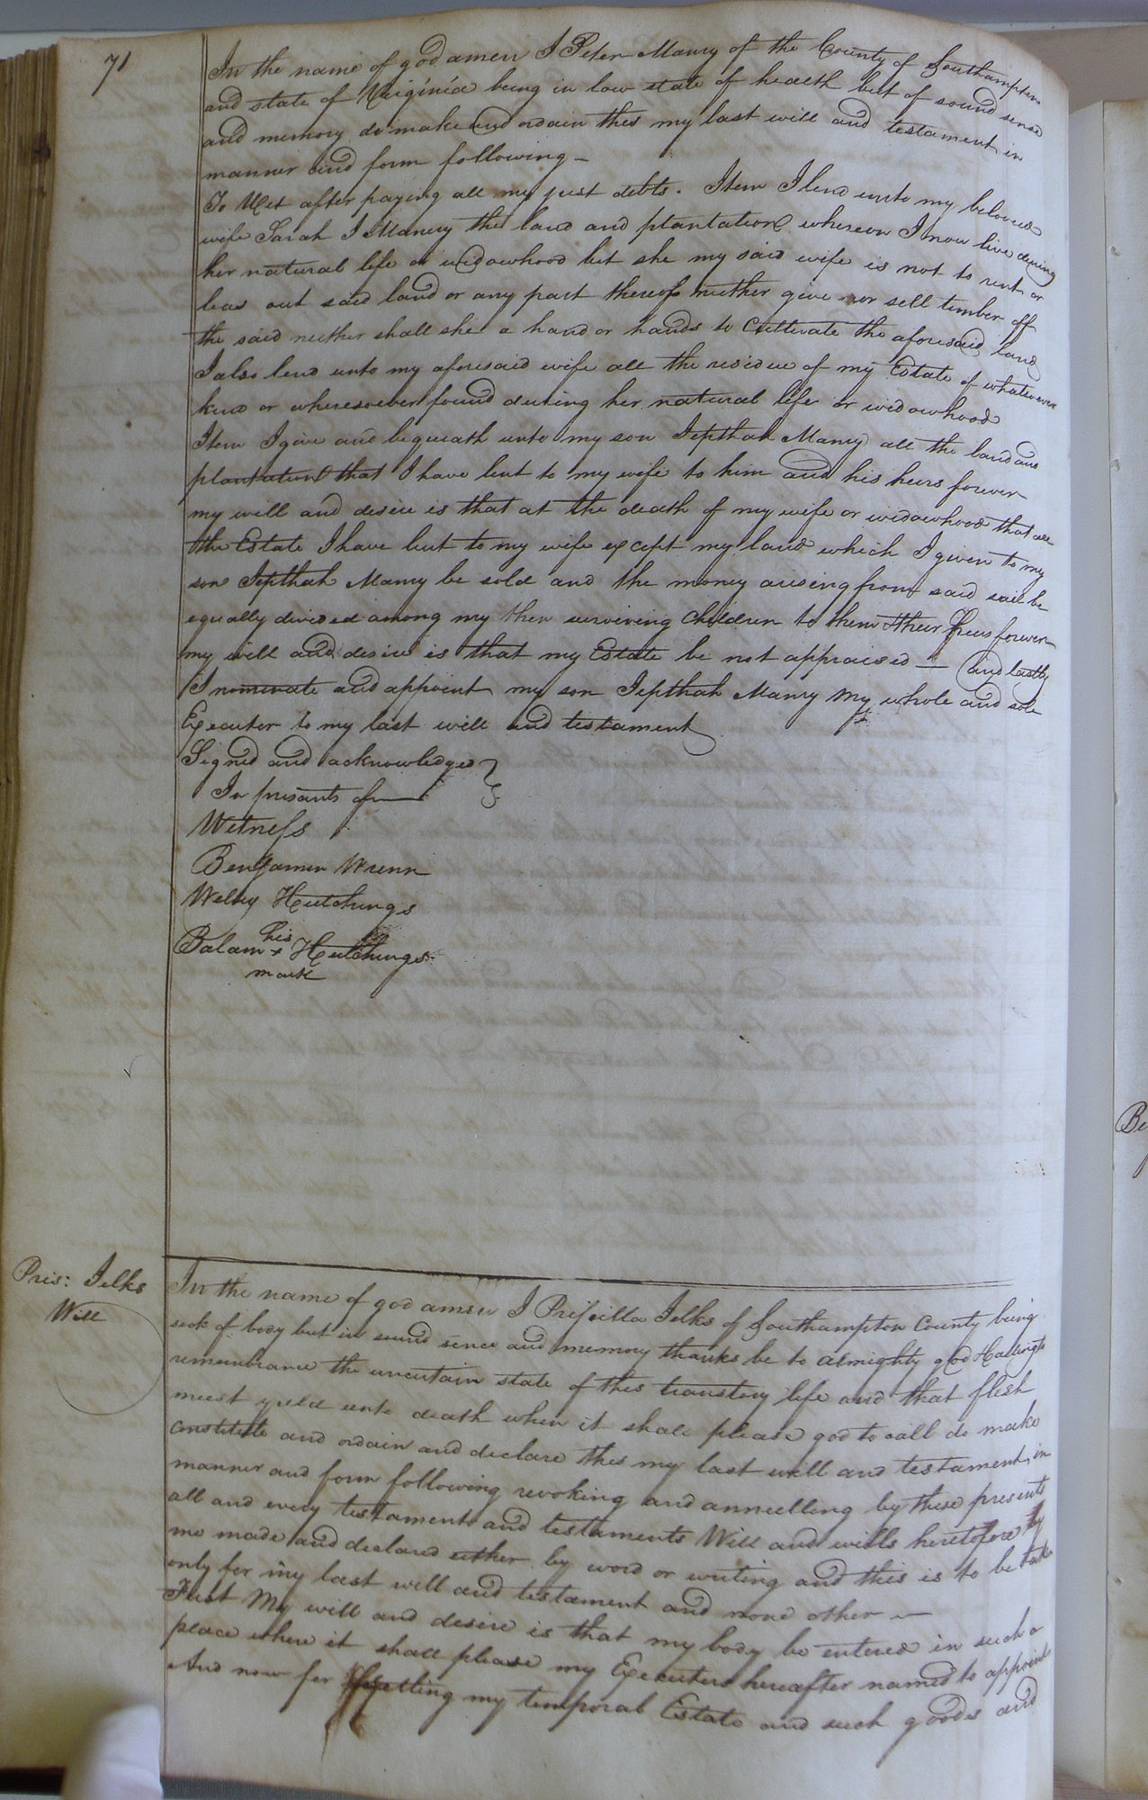 71
In the name of god amen I Peter Manry of the County of Southampton
and state of Virginia being in low state of health but of sound sense
and memory do make and ordain this my last will and testament in
manner and form following –
To Wit after paying all my just debts. Item I lend unto my beloved
wife Sarah I Manry the land and plantation whereon I now live during
her natural life or widowhood but she my said wife is not to rent or
leas out said land or any part thereof neither give nor sell timber off
the said neither shall she a hand or hands to cultivate the aforesaid land
I also lend unto my aforesaid wife all the residue of my Estate of whatever
kind or wheresoever found during her natural life or widowhood
Item I give and bequeath unto my son Jepthah Manry all the land and
plantation that I have lent to my wife to him and his heirs forever
my will and desire is that at the death of my wife or widowhood that all
the Estate I have lent to my wife except my land which I given to my
son Jepthah Manry be sold and the money arising from said sail be
equally divided among my then surviving children to them & their heirs forever
my will and desire is that my Estate be not appraised — and lastly
I nominate and appoint my son Jepthah Manry my whole and sole
Executer to my last will and testament
Signed and acknowledged
In presants of
Witness
Benjamin Wrenn
Welley Hutchings
his
Balam + Hutchings
mark
Pris: Jelks
Will
In the name of god amen I Priscilla Jelks of Southampton County being
seek of body but in sound sence and memory thanks be to almighty god & calling to
remembrance the uncertain state of this transitory life and that flesh
must yield unto death when it shall please god to call do make
constitute and ordain and declare this my last will and testament in
manner and form following revoking and annulling by these presents
all and every testament and testaments Will and wills heretofore by
me made and declared either by word or writing and this is to be taken
only for my last will and testament and none other —
First My will and desire is that my body be entered in such a
place where it shall please my Executers hereafter named to appoint
And now for settling my temporal Estate and such goods and
Be